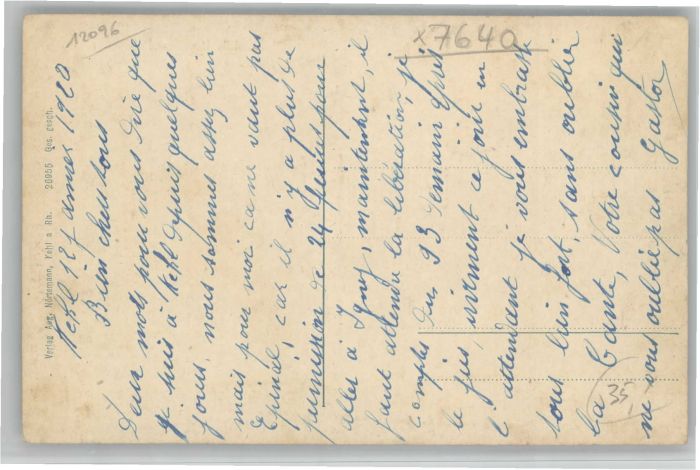 12096
x7640
Kehl le 27 1920
Bien chers tous
Deux mots pour vous dire que
je suis à Kehl depuis quelques
jours, nous sommes assez bien
mais pour moi ça ne vaut pas
Epinal, car il n'y a plus de
permission de 24 heures pour
aller à Igney, maintenant, il
faut attendre la libération, je
comptes 93 demain
le jus vivement ce jour en
l'attendant je vous embrasse
tous bien fort, sans oublier
la Tante, Votre cousin qui
ne vous oublie pas Gaston
35,
Verlag Aug. Nürnemann, Kehl a Rh. 20955 Ges. gesch.